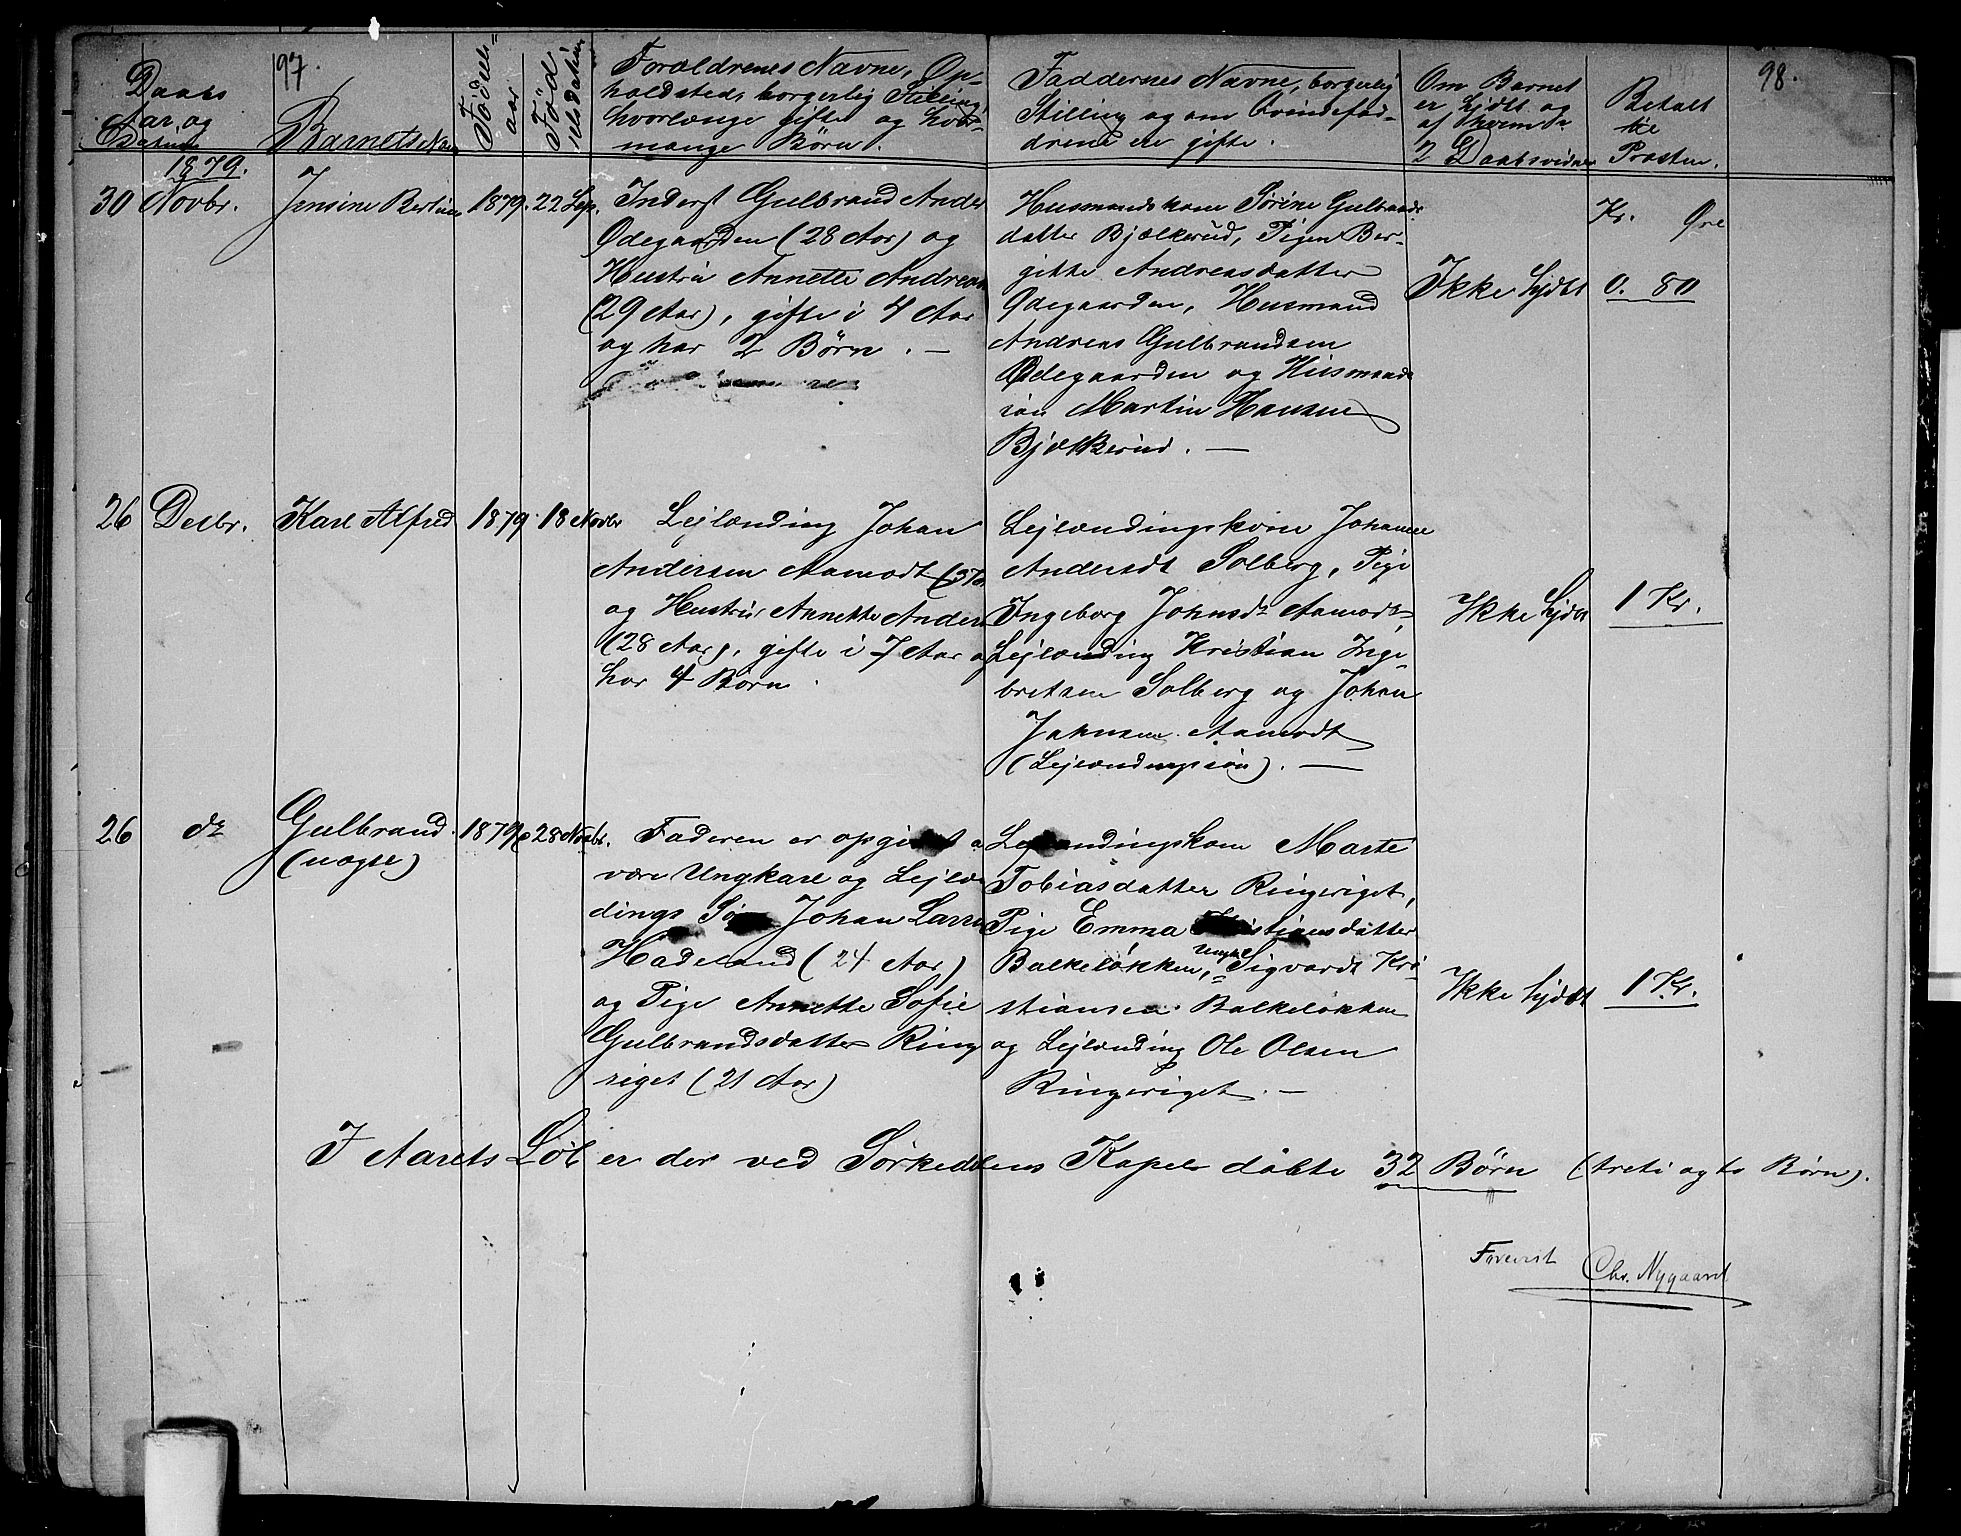 97.
98.
Daabs
Aar og
Datum
Barnets Navn
Fødsels=
aar
Fød
selsdatum
Forældrenes Navne, Op-
holdsted, borgerlig Stilling,
hvorlænge gifte og hvor-
mange Børn.
Faddernes Navne, borgerlig
Stilling og om Qvindefad-
drene ere gifte.
Om Barnet
er hjdbt og
af hvem &
2 Daabsvidner
Betalt
til
Præsten.
1879.
30 Novbr.
Jensine Bertine
1879.
22 Sep.
Inderst Gulbrand Ander
Ødegaarden (28 Aar) og
Hustru Annette Andreas
(29 Aar), gifte i 4 Aar
og har 2 Børn. —
Husmandskone Sørine Gulbrands
datter Bjælkerud, Pigen Ber-
gitte Andreasdatter
Ødegaarden, Husmand
Andreas Gulbrandsen
Ødegaarden og Husmands
søn Martin Hansen
Bjælkerud. —
Ikke hjdbt
Kr. Øre
0. 80
26 Decbr.
Karl Alfred
1879.
18 Novbr
Lejlænding Johan
Andersen Aamodt (37 a
og Hustru Annette Anders
(28 Aar), gifte i 7 Aar og
har 4 Børn.
Lejlændingskone Johanne
Andersdt Solberg, Pige
Ingeborg Johnsdr Aamodt,
Lejlænding Kristian Inge-
bretsen Solberg og Johan
Johnsen Aamodt
(Lejlændingsøn). —
Ikke hjdbt
1 Kr.
26 dr
Gulbrand.
(uægte)
1879
28 Novbr.
Faderen er opgivet a
være Ungkarl og Lejlæn
dings Søn Johan Larsen
Hadeland (24 Aar)
og Pige Annette Sofie
Gulbrandsdatter Ring
riget (21 Aar)
Lejlændingskone Marte
Tobiasdatter Ringeriget,
Pige Emma Kristiansdatter
Balkeløkken, Ungkl Sigvardt Kri
stiansen Balkeløkken
og Lejlænding Ole Olsen
Ringeriget. —
Ikke hjdbt
1 Kr.
I Aarets Løb er der ved Sørkedalens Kapel døbte 32 Børn (treti og to Børn).
Forevist Chr. Nygaard